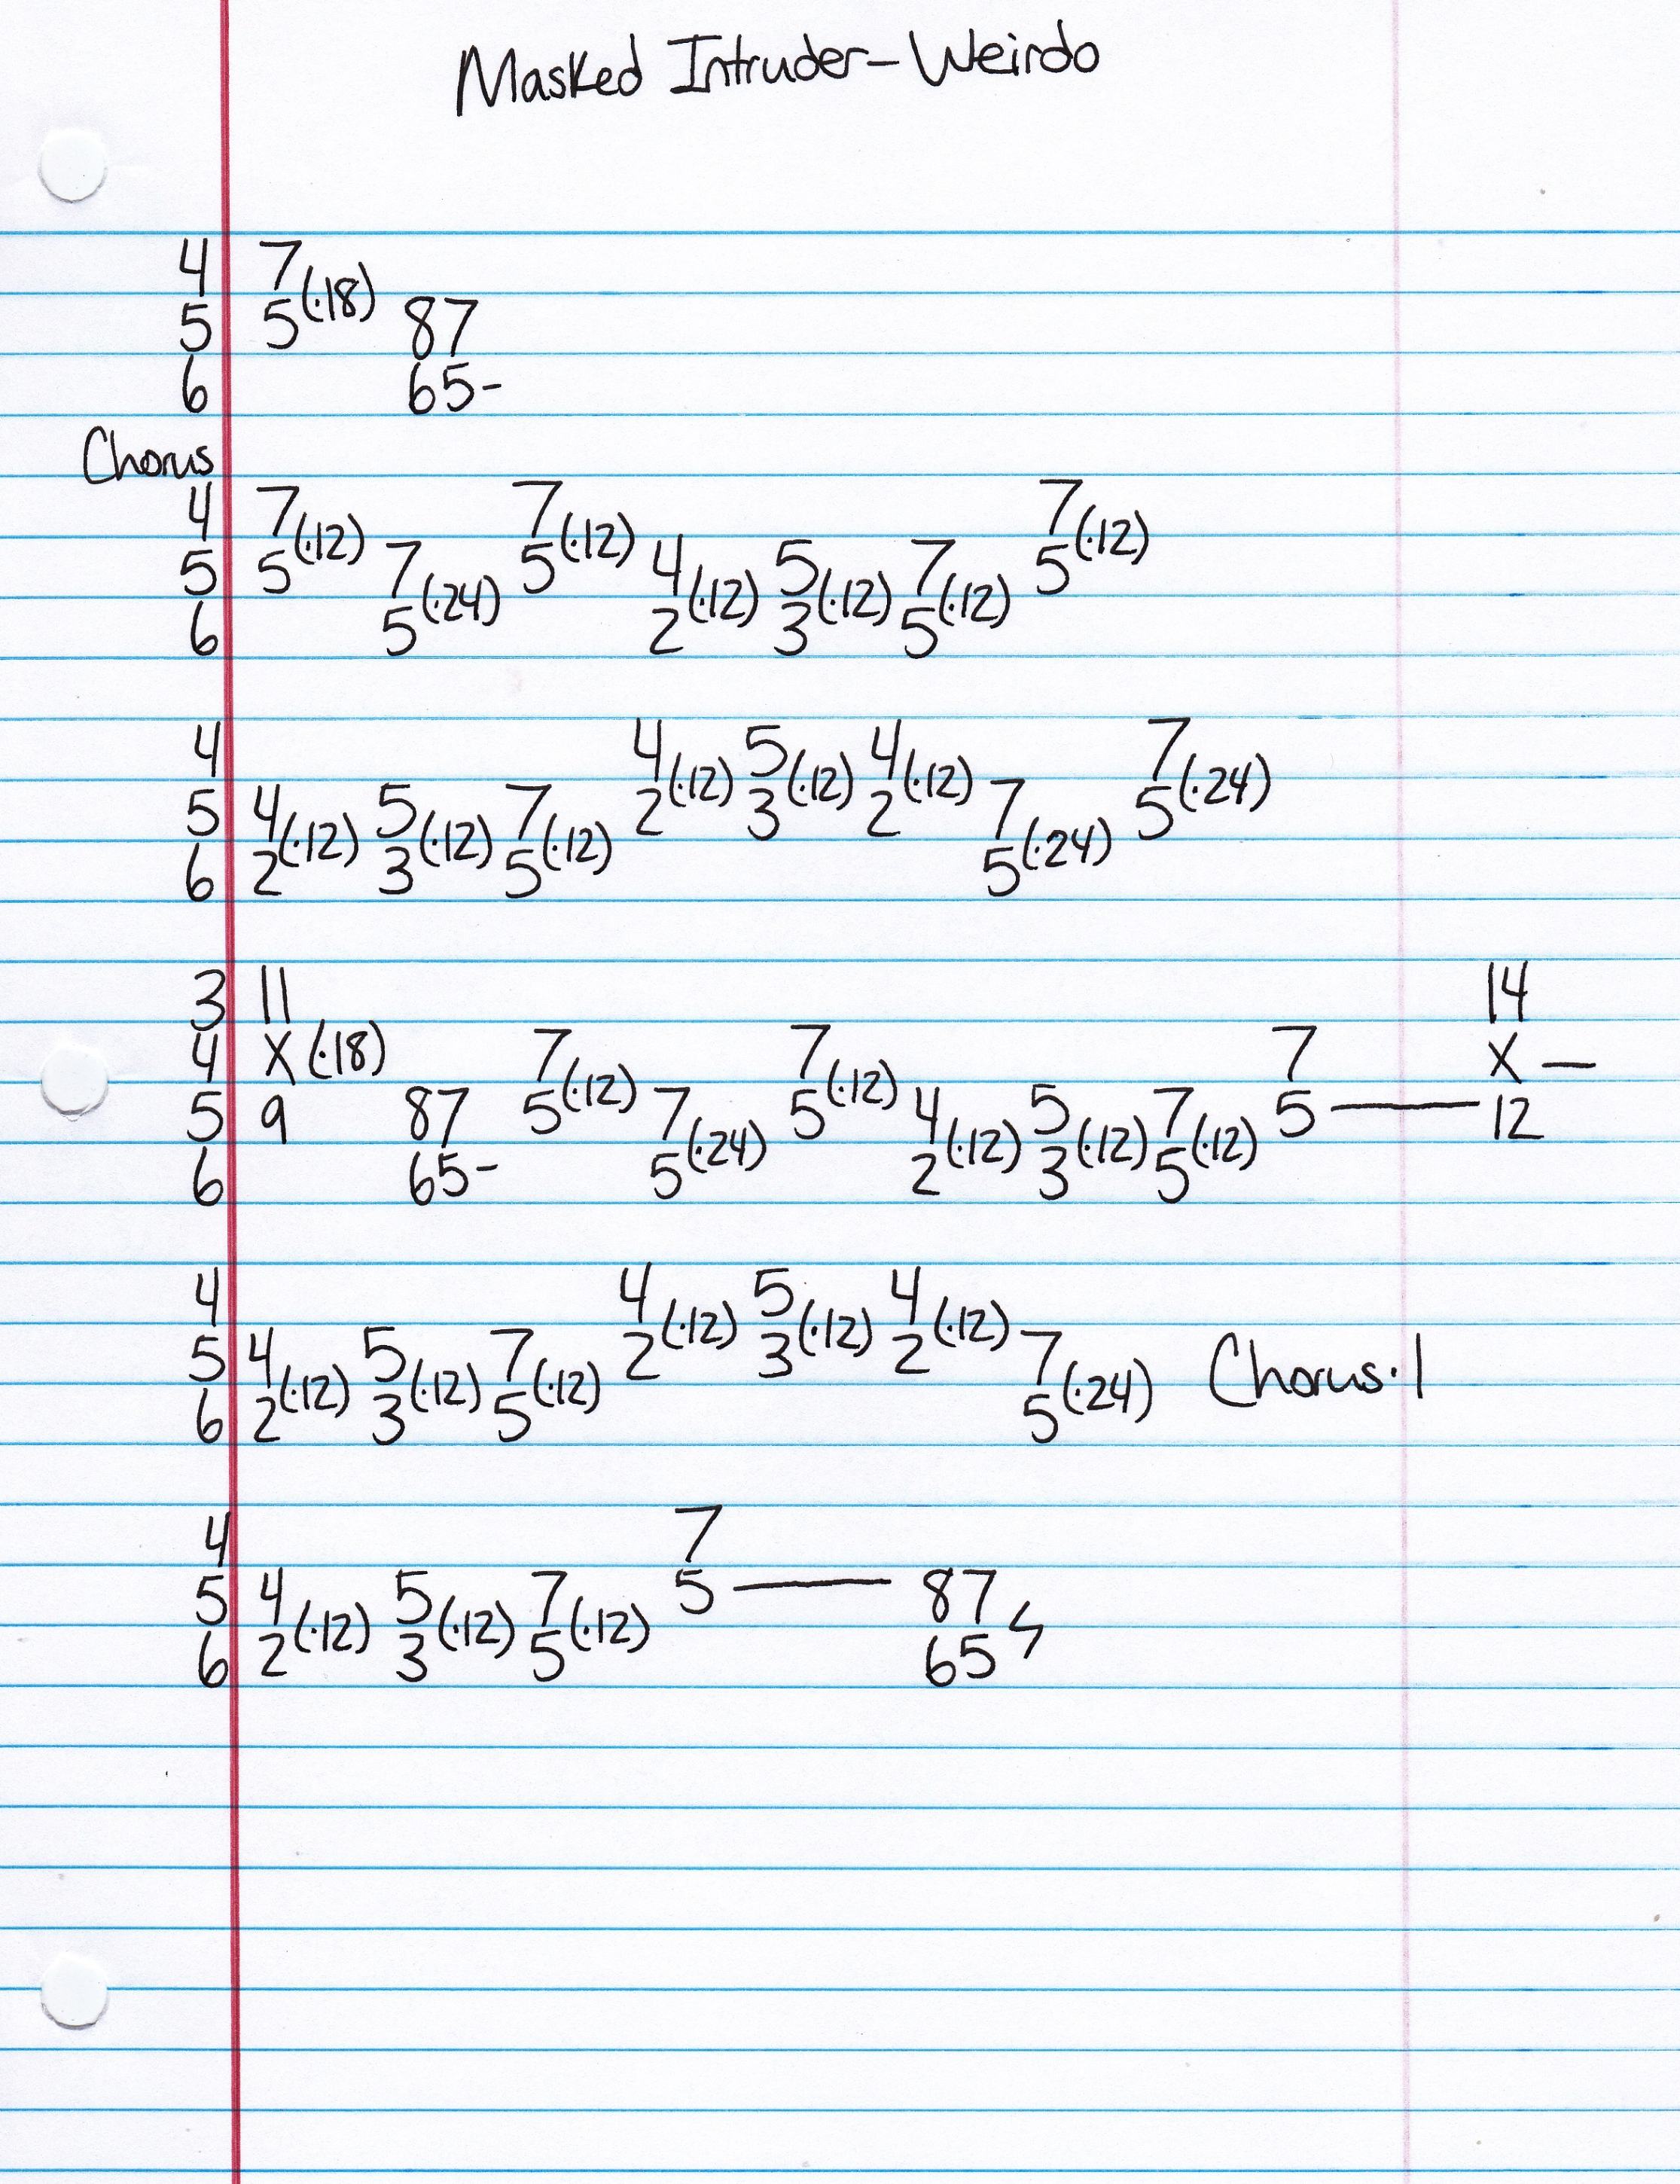 Masked Intruder-Weirdo
4 7
5 5(·18) 87
6 65-
Chorus
4 7(·12) 7(·12) 7(·12)
5 5 7 5 4 5 7 5
6 5(·24) 2(·12) 3(·12) 5(·12)
4 4(·12) 5(·12) 4(·12) 7(·24)
5 4 5 7 2 3 2 7 5
6 2(·12) 3(·12) 5(·12) 5(·24)
3 11 14
4 X (·18) 7(·12) 7(·12) 7 X —
5 9 87 5 7 5 4 5 7 5 — 12
6 65- 5(·24) 2(·12) 3(·12) 5(·12)
4 4(·12) 5(·12) 4(·12)
5 4 5 7 2 3 2 7 Chorus·1
6 2(·12) 3(·12) 5(·12) 5(·24)
4 7
5 4 5 7 5 — 87
6 2(·12) 3(·12) 5(·12) 65